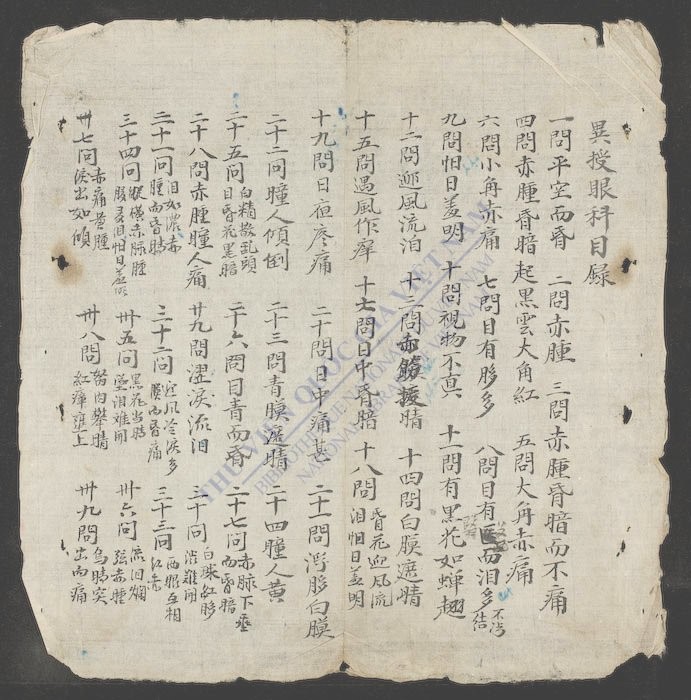 異授眼科目錄
一問平空而昏 二問赤腫 三問赤腫昏暗而不痛
四問赤腫昏暗起黑雲大角紅 五問大角赤痛
六問小角赤痛 七問目有眵多 八問目有而泪多不結
九問怕日羞明 十問視物不真 十一問有黑花如蟬翅
十二問迎風流泊 十三問赤援睛 十四問白膜遮睛
十五問遇風作痒 十七問日中昏暗 十八問昏花迎風流泪怕日羞明
十九問日夜疼痛 二十問日中痛甚 二十一問眵白膜
二十二問瞳人傾倒 二十三問青膜遮睛 二十四瞳人黃
二十五問白精散乱頭目昏花黑暗 二十六問目青而昏 二十七問赤脉下垂而昏暗
二十八問赤腫瞳人痛 廿九問澀淚流泪 三十問白珠紅眵澁難開
三十一問泪如濃赤腫而昏暗 三十二問迎風冷淚多而昏痛 三十三問両瞼互相紅
三十四問赤脉腫泪怕日羞 卅五問黑花当睛墜泪难開 卅六問流泪赤腫
卅七問赤痛黃腫淚出如傾 卅八問努肉攀睛紅瘴壅上 卅九問烏睛突出而痛
THƯ VIỆN QUỐC GIA VIỆT NAM
BIBLIOTHÈQUE NATIONALE DU VIETNAM
NATIONAL LIBRARY OF VIETNAM